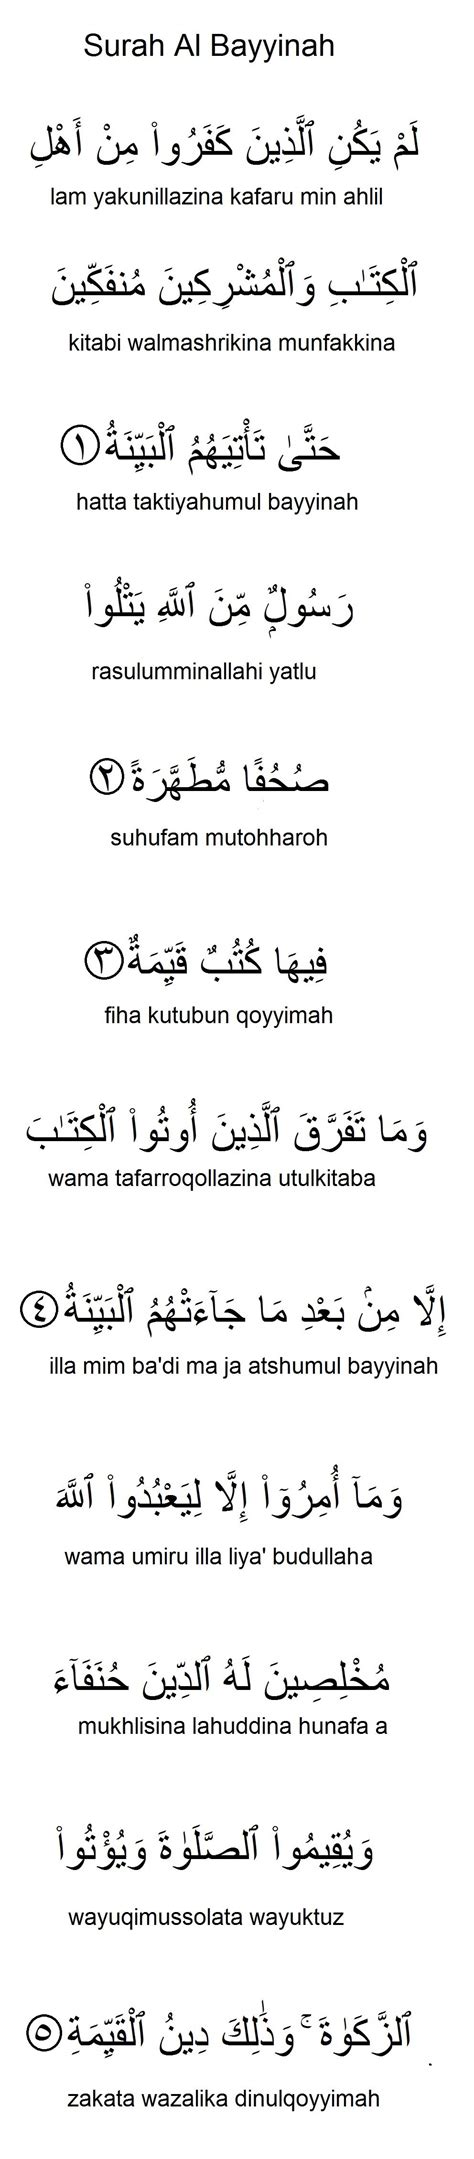 Surah Al Bayyinah
لَمْ يَكُنِ ٱلَّذِينَ كَفَرُوا۟ مِنْ أَهْلِ
lam yakunillazina kafaru min ahlil
ٱلْكِتَـٰبِ وَٱلْمُشْرِكِينَ مُنفَكِّينَ
kitabi walmashrikina munfakkina
حَتَّىٰ تَأْتِيَهُمُ ٱلْبَيِّنَةُ ١
hatta taktiyahumul bayyinah
رَسُولٌۭ مِّنَ ٱللَّهِ يَتْلُوا۟
rasulumminallahi yatlu
صُحُفًا مُّطَهَّرَةً ٢
suhufam mutohharoh
فِيهَا كُتُبٌ قَيِّمَةٌ ٣
fiha kutubun qoyyimah
وَمَا تَفَرَّقَ ٱلَّذِينَ أُوتُوا۟ ٱلْكِتَـٰبَ
wama tafarroqollazina utulkitaba
إِلَّا مِنۢ بَعْدِ مَا جَآءَتْهُمُ ٱلْبَيِّنَةُ ٤
illa mim ba'di ma ja atshumul bayyinah
وَمَآ أُمِرُوٓا۟ إِلَّا لِيَعْبُدُوا۟ ٱللَّهَ
wama umiru illa liya' budullaha
مُخْلِصِينَ لَهُ ٱلدِّينَ حُنَفَآءَ
mukhlisina lahuddina hunafa a
وَيُقِيمُوا۟ ٱلصَّلَوٰةَ وَيُؤْتُوا۟
wayuqimussolata wayuktuz
ٱلزَّكَوٰةَ ۚ وَذَٰلِكَ دِينُ ٱلْقَيِّمَةِ ٥
zakata wazalika dinulqoyyimah